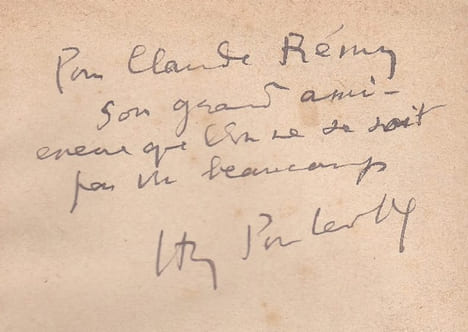 Pour Claude Rémy
son grand ami -
encore que l'on ne se soit
pas vu beaucoup
Hy Poulaille